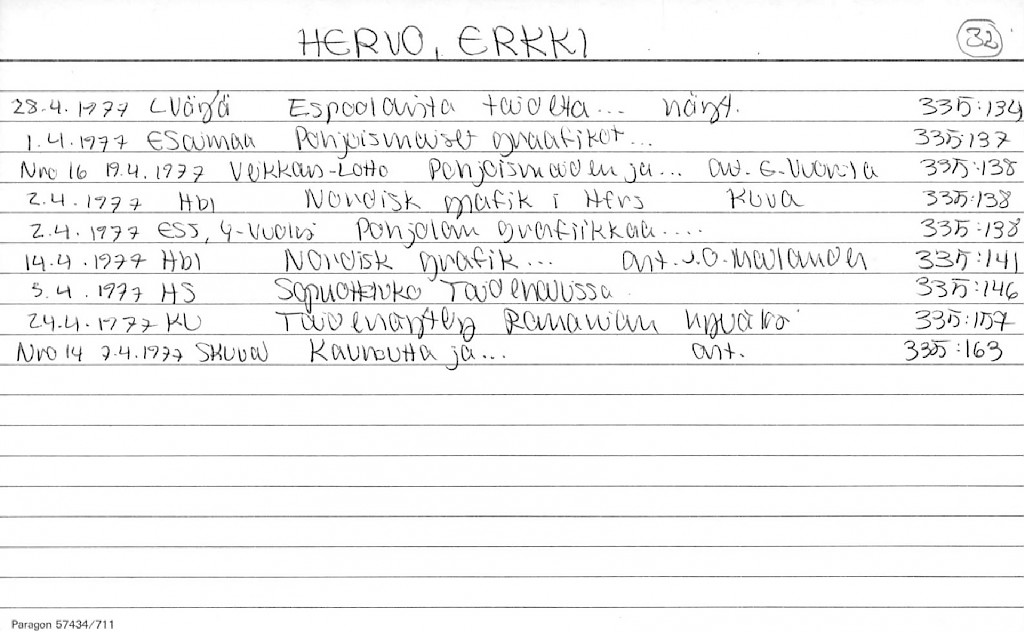 HERVO, ERKKI 32
28.4.1977 LVäylä Espoolaista taidetta... näyt. 335:134
1.4.1977 ESaimaa Pohjoismaiset graafikot... 335:137
Nro 16 19.4.1977 Veikkaus-Lotto Pohjoismaiden ja... 335:138
2.4.1977 Hbl Nordisk grafik i Hfrs Kuva 335:138
2.4.1977 ESS, Y-Vuolio Pohjolan grafiikkaa.... 335:138
14.4.1977 Hbl Nordisk grafik... art. J.O. Mallander 335:141
5.4.1977 HS Sopuottelu Taidehallissa 335:146
24.4.1977 KU Taidenäyttely Ramanian hyväksi 335:157
Nro 14 7.4.1977 SKuval Kauneutta ja... art. 335:163
Paragon 57434/711